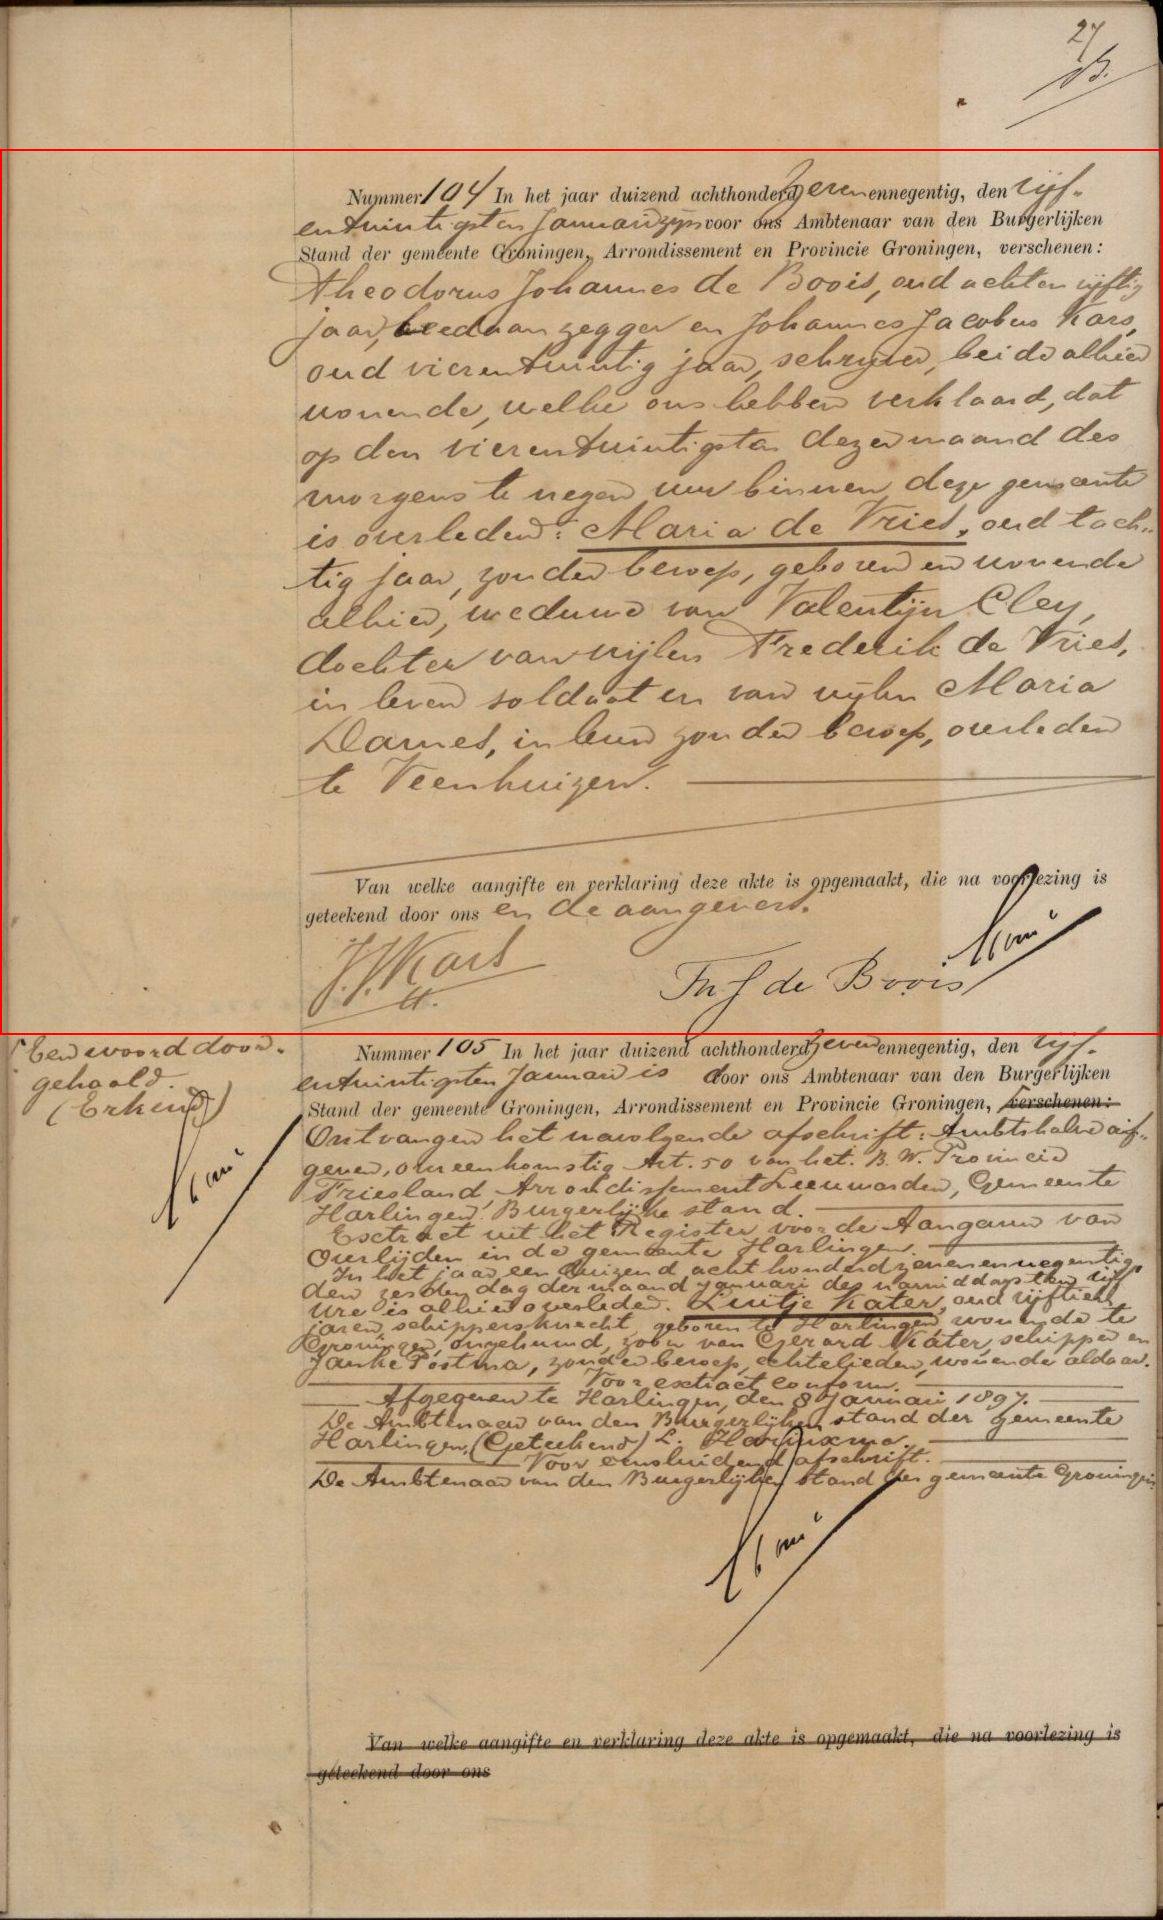 27
Nummer 104 In het jaar duizend achthonderd zevenennegentig, den vijf-
entwintigsten Januari zijn voor ons Ambtenaar van den Burgerlijken
Stand der gemeente Groningen, Arrondissement en Provincie Groningen, verschenen:
Theodorus Johannes de Boois, oud achtenvijftig
jaar, leedaanzegger en Johannes Jacobus Kars,
oud vierentwintig jaar, schrijver, beide alhier
wonende, welke ons hebben verklaard, dat
op den vierentwintigsten dezer maand des
morgens te negen uur binnen deze gemeente
is overleden: Maria de Vries, oud tach-
tig jaar, zonder beroep, geboren en wonende
alhier, weduwe van Valentijn Cley,
dochter van wijlen Frederik de Vries,
in leven soldaat en van wijlen Maria
Dames, in leven zonder beroep, overleden
te Veenhuizen.
Van welke aangifte en verklaring deze akte is opgemaakt, die na voorlezing is
geteekend door ons en de aangevers.
J.J. Kars
Th J de Boois
Een woord door-
gehaald.
(Erkend)
Nummer 105 In het jaar duizend achthonderd zevenennegentig, den vijf-
entwintigsten Januari is door ons Ambtenaar van den Burgerlijken
Stand der gemeente Groningen, Arrondissement en Provincie Groningen, verschenen:
Ontvangen het navolgende afschrift: Ambtshalve afge-
geven, overeenkomstig Art. 50 van het B. W. Provincie
Friesland, Arrondissement Leeuwarden, Gemeente
Harlingen. Burgerlijke stand.
Extract uit het Register voor de Aangave van
Overlijden in de gemeente Harlingen.
In het jaar een duizend acht honderd zevenennegentig,
den zesden dag der maand Januari des namiddags ten vijf
ure is alhier overleden. Luitje Kater, oud vijftien
jaren, schippersknecht, geboren te Harlingen, wonende te
Groningen, ongehuwd, zoon van Gerard Kater, schipper en
Janke Postma, zonder beroep, echtelieden, wonende aldaar.
Voor extract conform.
Afgegeven te Harlingen, den 8 Januari 1897.
De Ambtenaar van den Burgerlijken stand der gemeente
Harlingen, (Geteekend) L. Harinxma.
Voor eensluidend afschrift.
De Ambtenaar van den Burgerlijken stand der gemeente Groningen
Van welke aangifte en verklaring deze akte is opgemaakt, die na voorlezing is
geteekend door ons